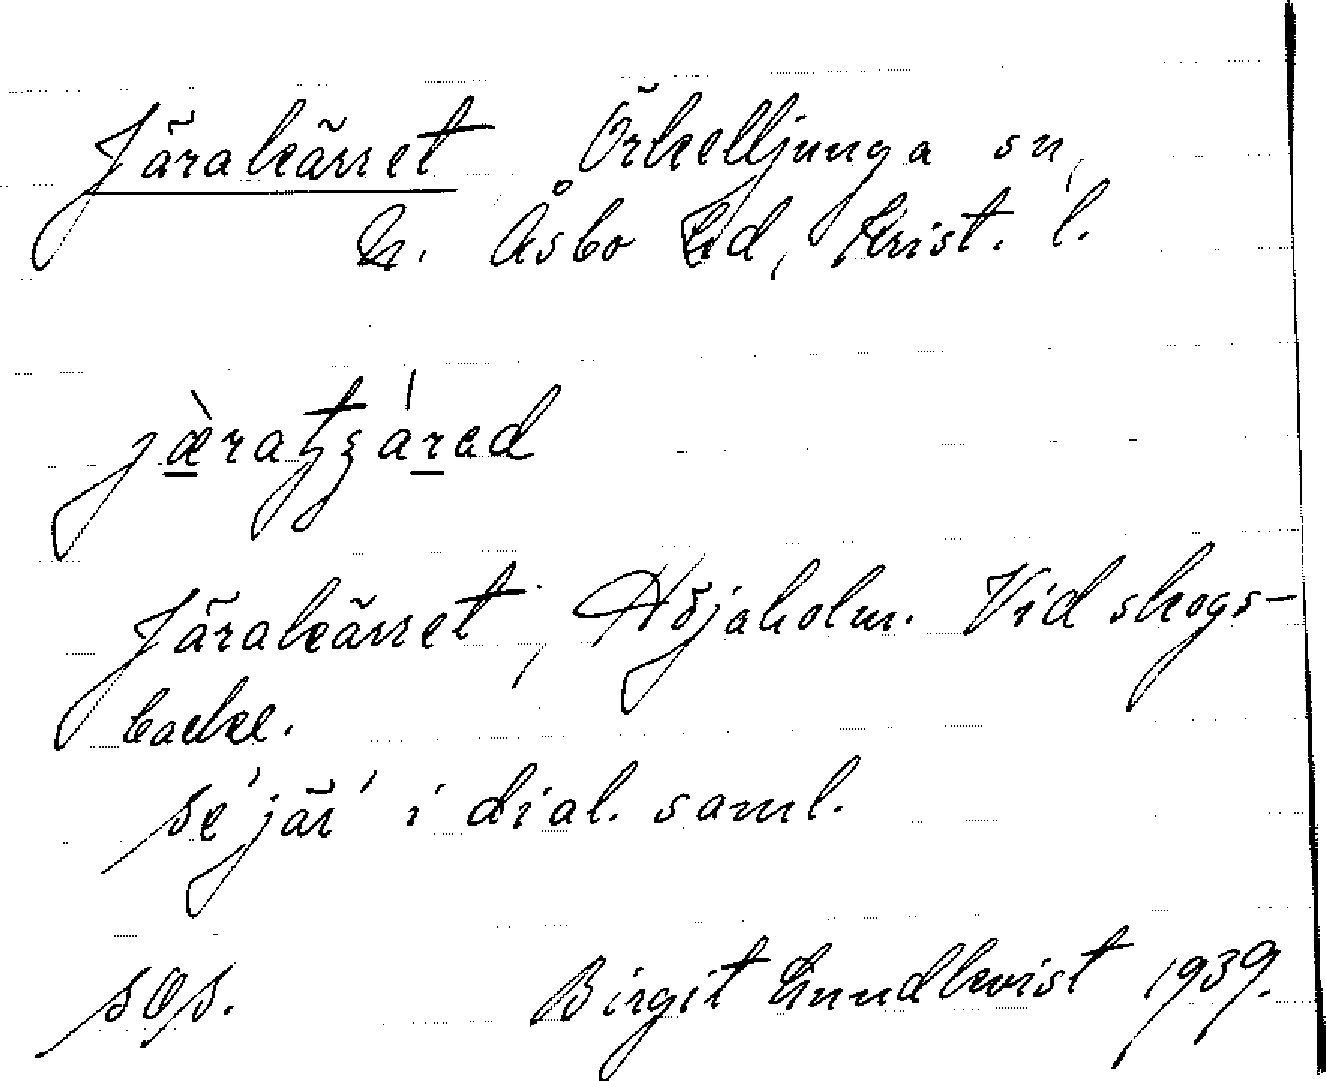 Järakärret Örkelljunga sn,
N. Åsbo hd, Krist. l.
jæ̀ratʒárad
Järakärret, Höjaholm. Vid skogs-
backe.
se 'jär' i dial. saml.
Birgit Lundkvist 1939.